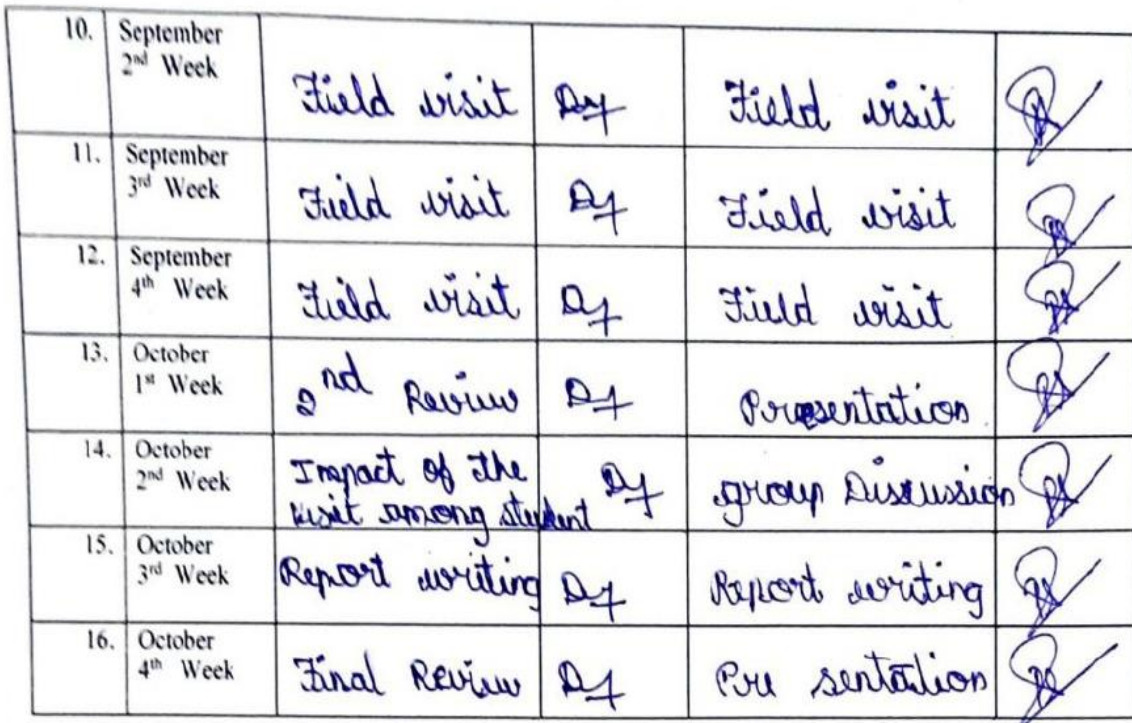 10. September
2nd Week
Field visit Field visit
11. September
3rd Week
Field visit Field visit
12. September
4th Week
Field visit Field visit
13. October
1st Week
2nd Review Presentation
14. October
2nd Week
Impact of the
visit among student
group Discussion
15. October
3rd Week
Report writing Report writing
16. October
4th Week
Final Review Pre sentation